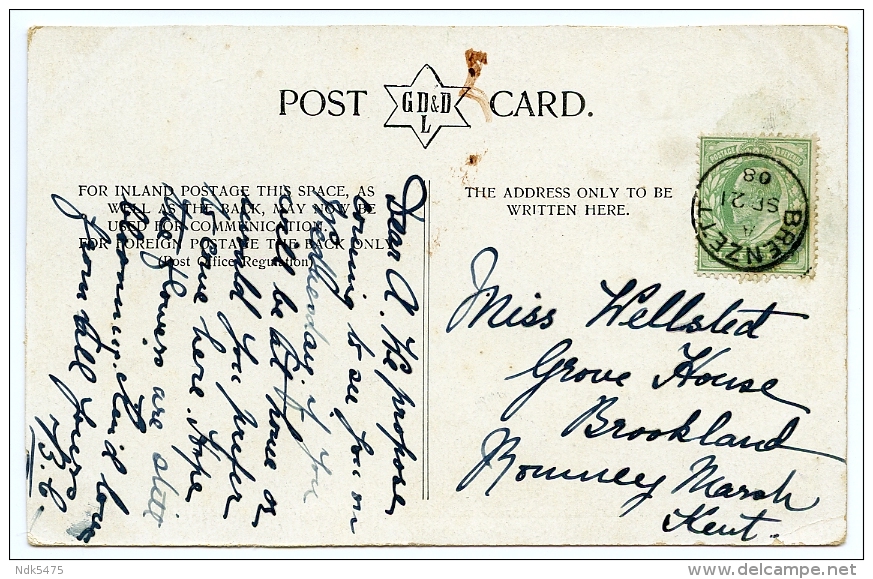 POST GD&D
L CARD.
FOR INLAND POSTAGE THIS SPACE, AS
WELL AS THE BACK, MAY NOW BE
USED FOR COMMUNICATION.
FOR FOREIGN POSTAGE THE BACK ONLY
(Post Office Regulation)
THE ADDRESS ONLY TO BE
WRITTEN HERE.
POSTAGE
BRENZETT
A
SP 21
08
Dear A. We propose
coming to see you on
Wednesday, if you
will be at home or
would you prefer
to come here. Hope
the flowers are still
blooming. Kind love
from all yours
B.C.
Miss Wellsted
Grove House
Brookland
Romney Marsh
Kent.
Ndk5475
delcampe.net